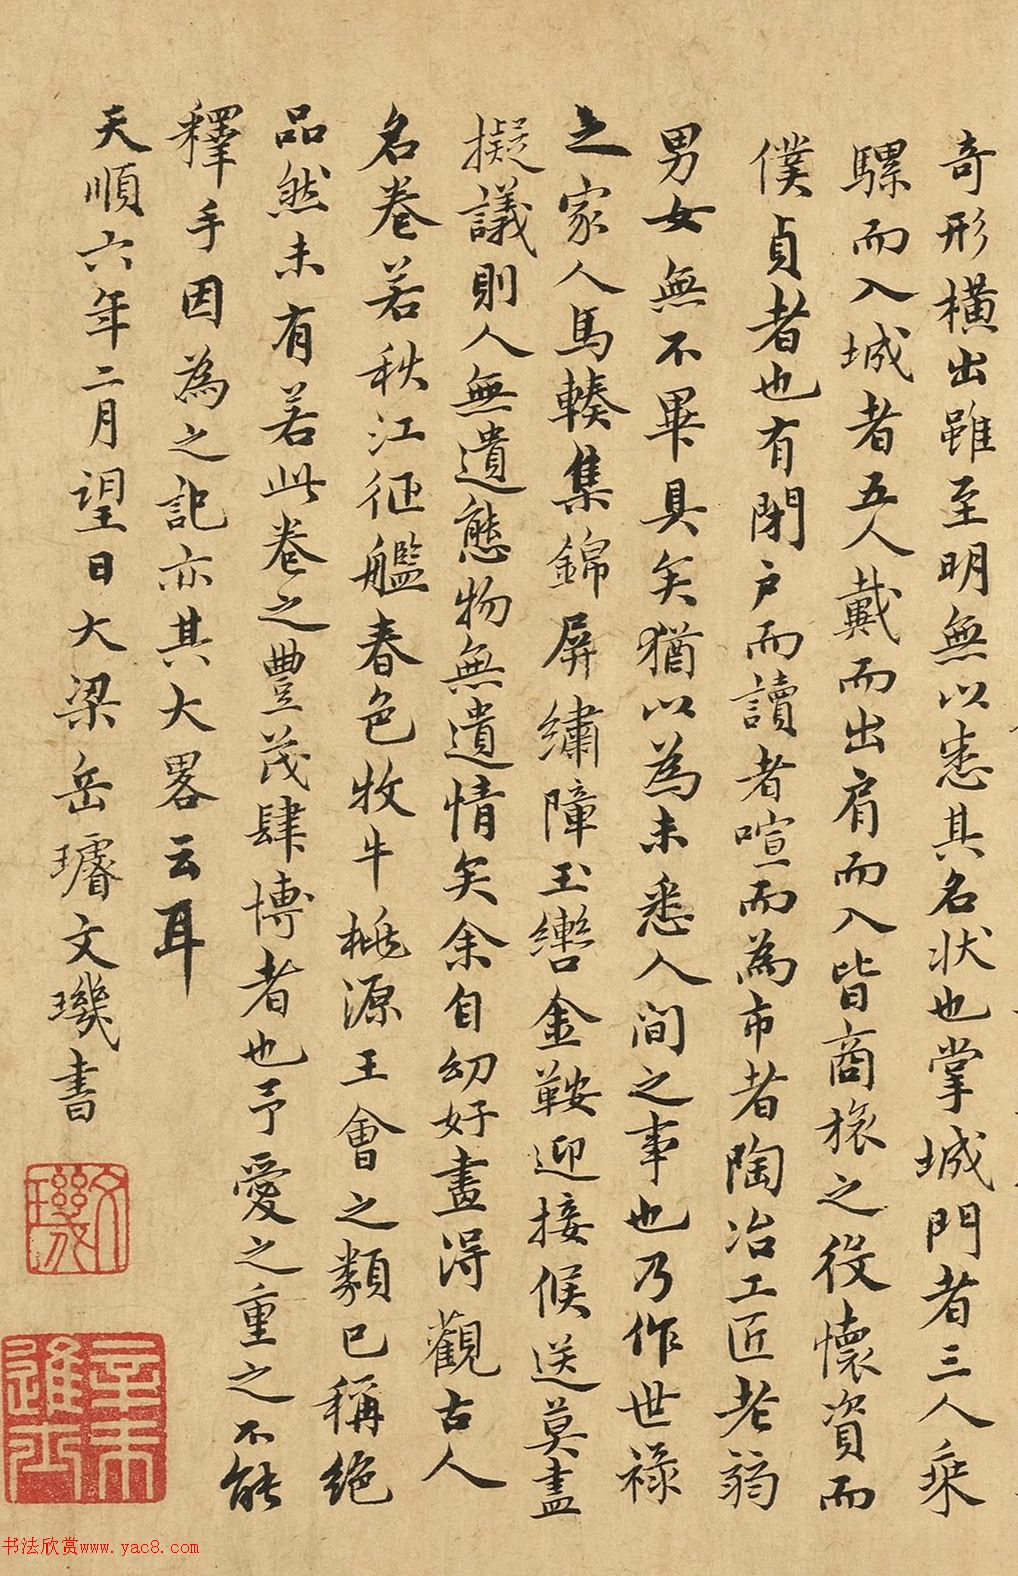 奇形橫出雖至明無以悉其名狀也掌城門者三人乘
騾而入城者五人戴而出肩而入皆商旅之役懷資而
僕貞者也有閉户而讀者喧而為市者陶冶工匠老弱
男女無不畢具矣猶以為未悉人間之事也乃作世祿
之家人馬輳集錦屏繡障玉轡金鞍迎接候送莫盡
擬議則人無遺態物無遺情矣余自幼好畫得觀古人
名卷若秋江征艦春色牧牛桃源王會之類已稱絕
品然未有若此卷之豐茂肆博者也予愛之重之不能
釋手因為之記亦其大畧云耳
天順六年二月望日大梁岳璿文璣書
文璣
辛未進士
书法欣赏www.yac8.com